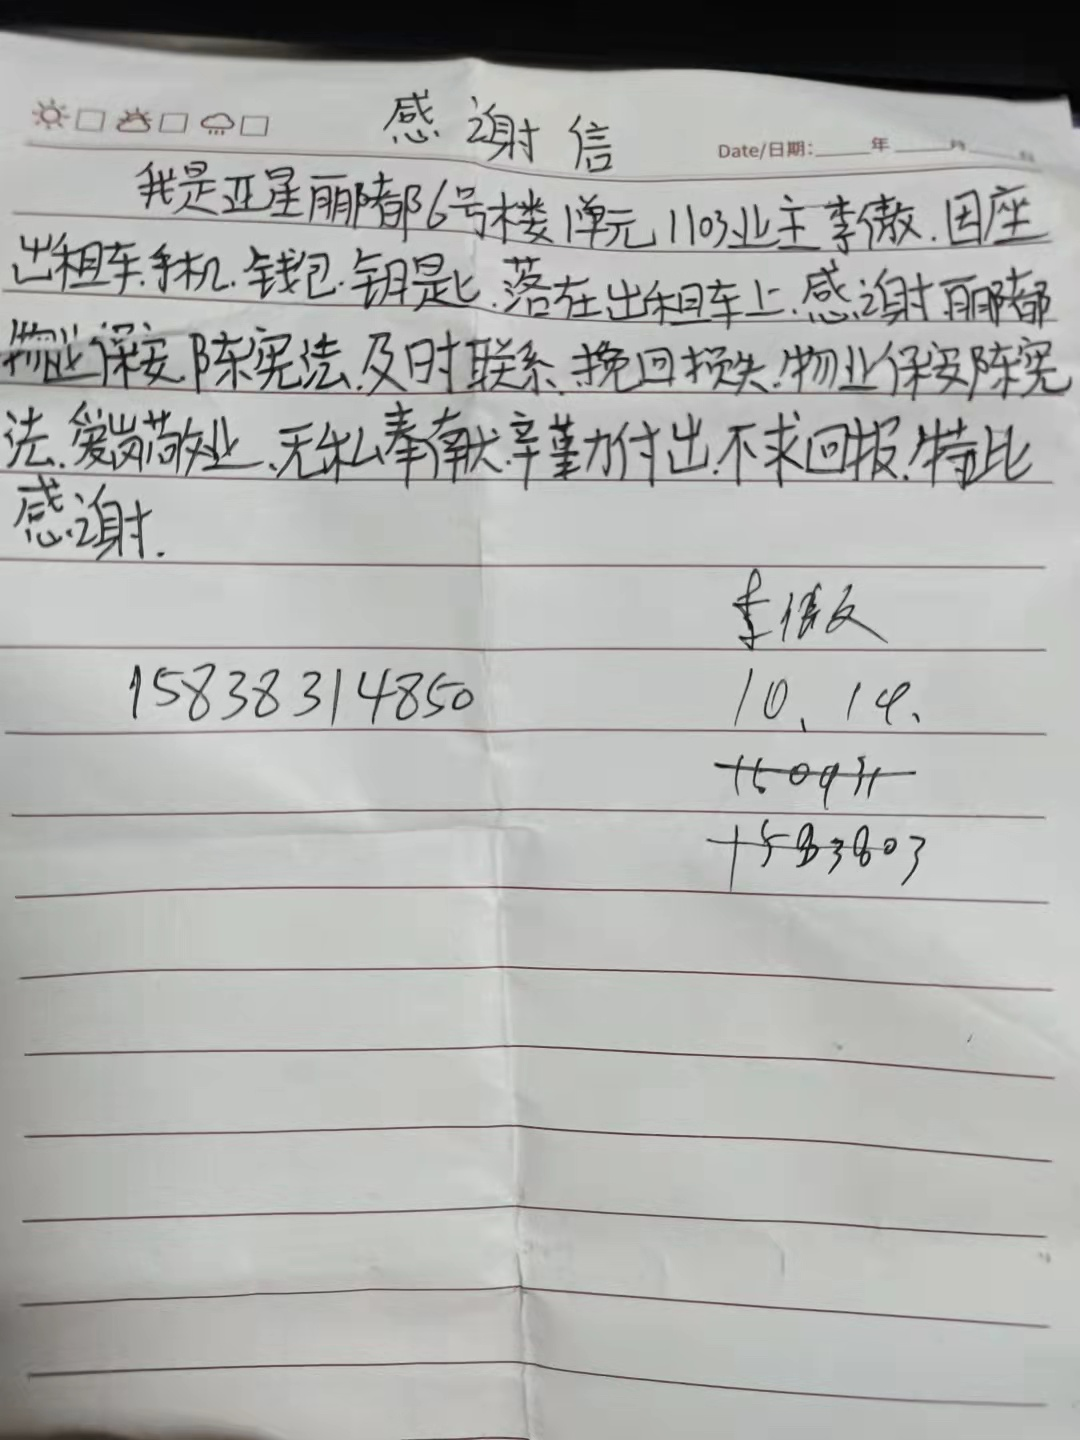 感谢信
Date/日期:____年____月____日
我是亚星丽都6号楼1单元1103业主李傲.因座
出租车.手机.钱包.钥匙.落在出租车上.感谢丽都
物业保安陈宪法.及时联系.挽回损失.物业保安陈宪
法.爱岗敬业、无私奉献.辛勤付出.不求回报.特此
感谢.
李傲
15838314850
10.14.